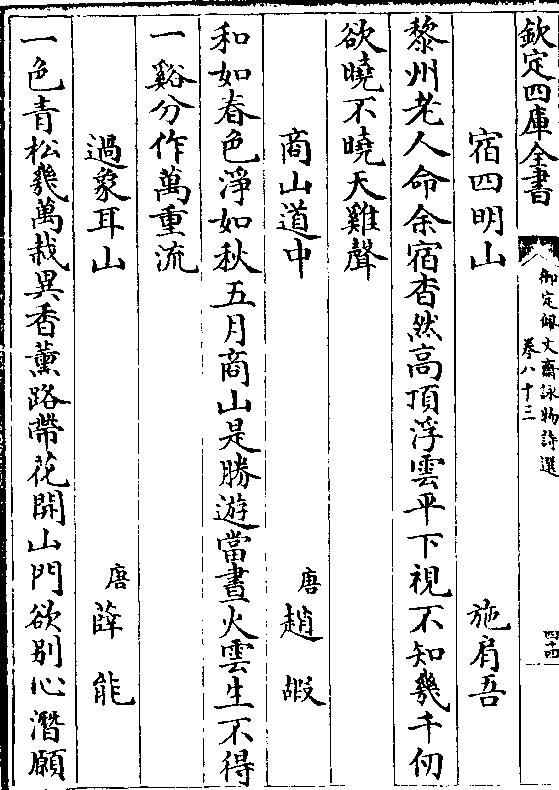 欽定四庫全書
御定佩文齋詠物詩選
卷八十三
四十四
宿四明山 施肩吾
黎州老人命余宿杳然高頂浮雲平下視不知幾千仞
欲曉不曉天雞聲
商山道中 唐趙嘏
和如春色淨如秋五月商山是勝遊當晝火雲生不得
一谿分作萬重流
過象耳山 唐薛能
一色青松幾萬栽異香薰路帶花開山門欲别心潛願